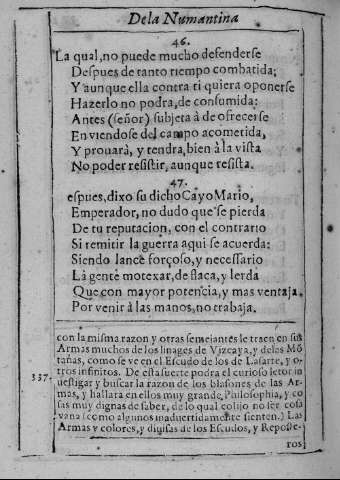 De la Numantina
46.
La qual, no puede mucho defenderse
Despues de tanto tiempo combatida;
Y aunque ella contra ti quiera oponerse
Hazerlo no podra, de consumida:
Antes (señor) subjeta à de ofrecerse
En viendose del campo acometida,
Y prouarà, y tendra, bien à la vista
No poder resistir, aunque resista.
47.
espues, dixo su dicho Cayo Mario,
Emperador, no dudo que se pierda
De tu reputacion, con el contrario
Si remitir la guerra aqui se acuerda:
Siendo lance forçoso, y necessario
La gente motexar, de flaca, y lerda
Que con mayor potencia, y mas ventaja,
Por venir à las manos, no trabaja.
con la misma razon y otras semejantes le traen en sus
Armas muchos de los linages de Vizcaya, y de las Mõ
tañas, como se ve en el Escudo de los de Lasarte, y o-
tros infinitos. De esta suerte podra el curioso letor in
337. uestigar y buscar la razon de los blasones de las Ar-
mas, y hallara en ellos muy grande Philosophia, y co
sas muy dignas de saber, de lo qual colijo no ser cosa
vana (como algunos inaduertidamente sienten.) Las
Armas y colores, y diuisas de los Escudos, y Reposte-
ros